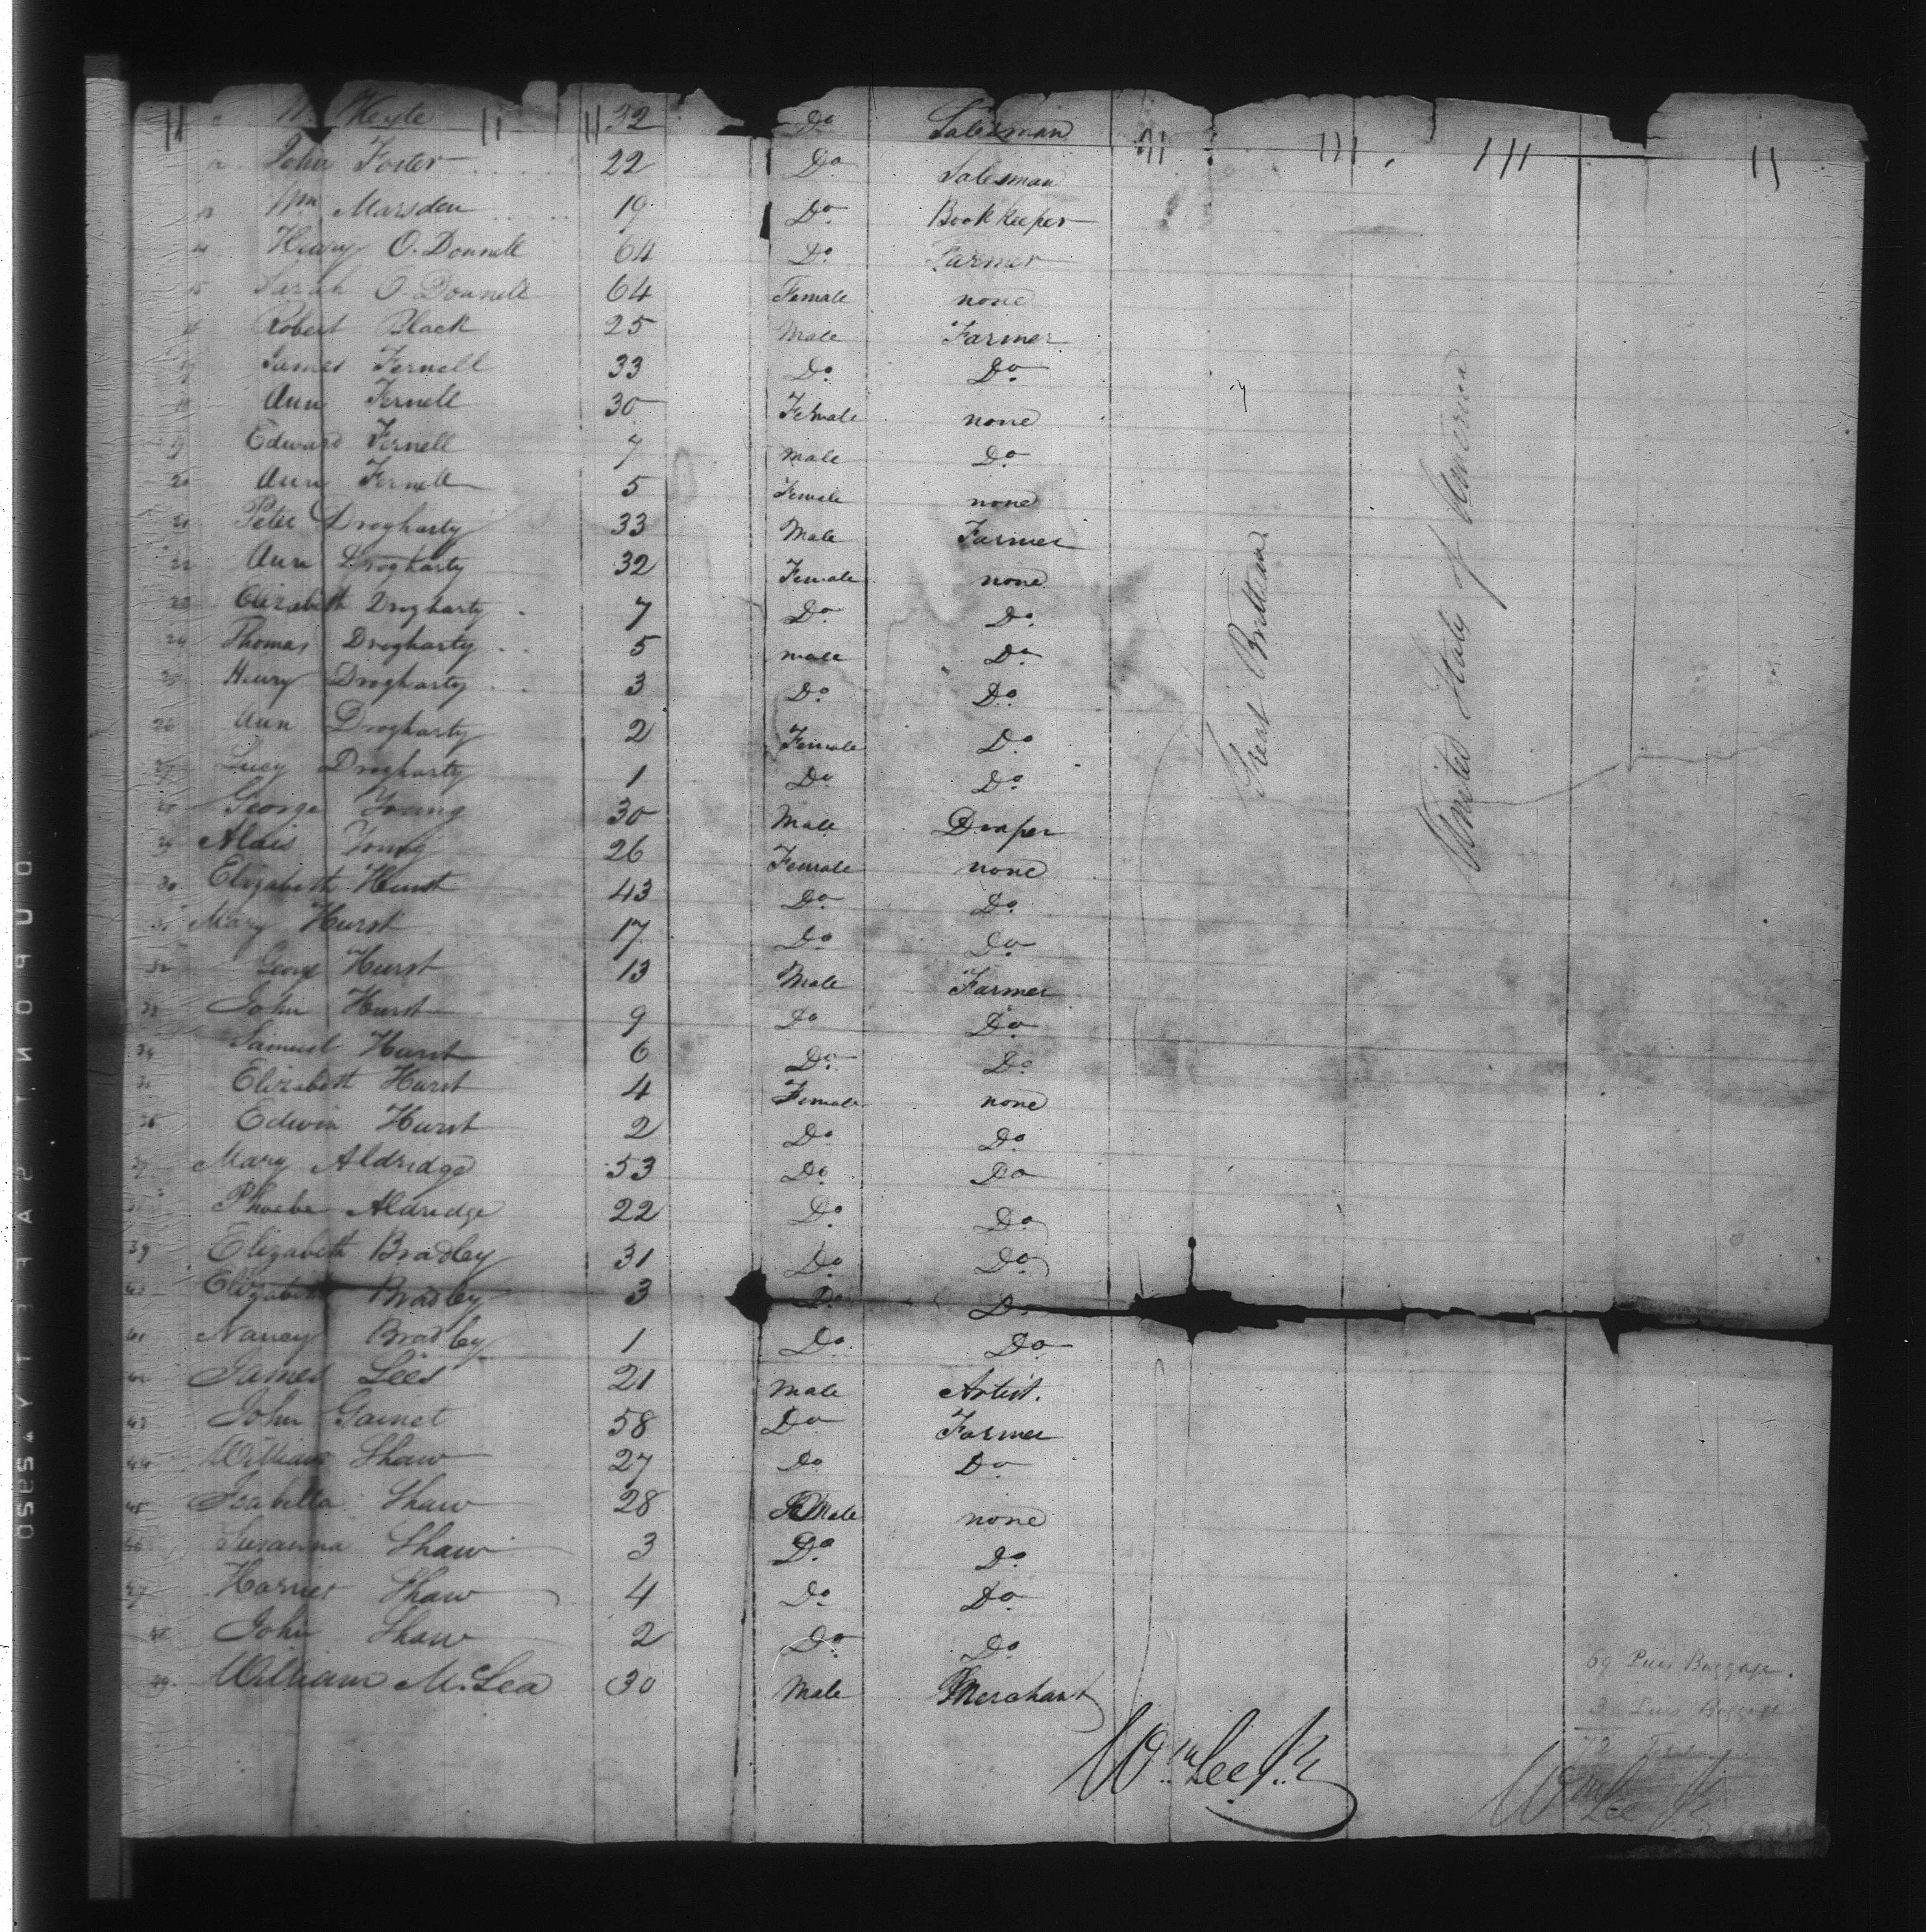 W. Heyte 32 Do Salesman
John Foster 22 Do Salesman
13 Wm Marsden 19 Do Bookkeeper
14 Henry O. Donnell 64 Do Farmer
15 Sarah O. Donnell 64 Female none
Robert Black 25 Male Farmer
17 James Fernell 33 Do Do
18 Ann Fernell 30 Female none
19 Edward Fernell 7 Male Do
20 Ann Fernell 5 Female none
21 Peter Drogharty 33 Male Farmer
22 Ann Drogharty 32 Female none
23 Elizabeth Drogharty 7 Do Do
24 Thomas Drogharty 5 male Do
25 Henry Drogharty 3 Do Do
26 Ann Drogharty 2 Female Do
27 Lucy Drogharty 1 Do Do
28 George Young 30 Male Draper
29 Alais Young 26 Female none
30 Elizabeth Hurst 43 Do Do
31 Mary Hurst 17 Do Do
32 George Hurst 13 Male Farmer
33 John Hurst 9 Do Do
34 Samuel Hurst 6 Do Do
35 Elizabeth Hurst 4 Female none
36 Edwin Hurst 2 Do Do
37 Mary Aldridge 53 Do Do
Phoebe Aldridge 22 Do Do
39 Elizabeth Bradley 31 Do Do
40 Elizabeth Bradley 3 Do Do
41 Nancy Bradley 1 Do Do
42 James Lees 21 Male Artist.
43 John Gainet 58 Do Farmer
44 William Shaw 27 Do Do
45 Isabella Shaw 28 FeMale none
46 Susanna Shaw 3 Do Do
47 Harriet Shaw 4 Do Do
48 John Shaw 2 Do Do
49. William McLea 30 Male Merchant
Great Brittain
United States of America
69 Pces Baggage.
3 Pces Baggage
72
Wm Lee Jr
Wm Lee Jr